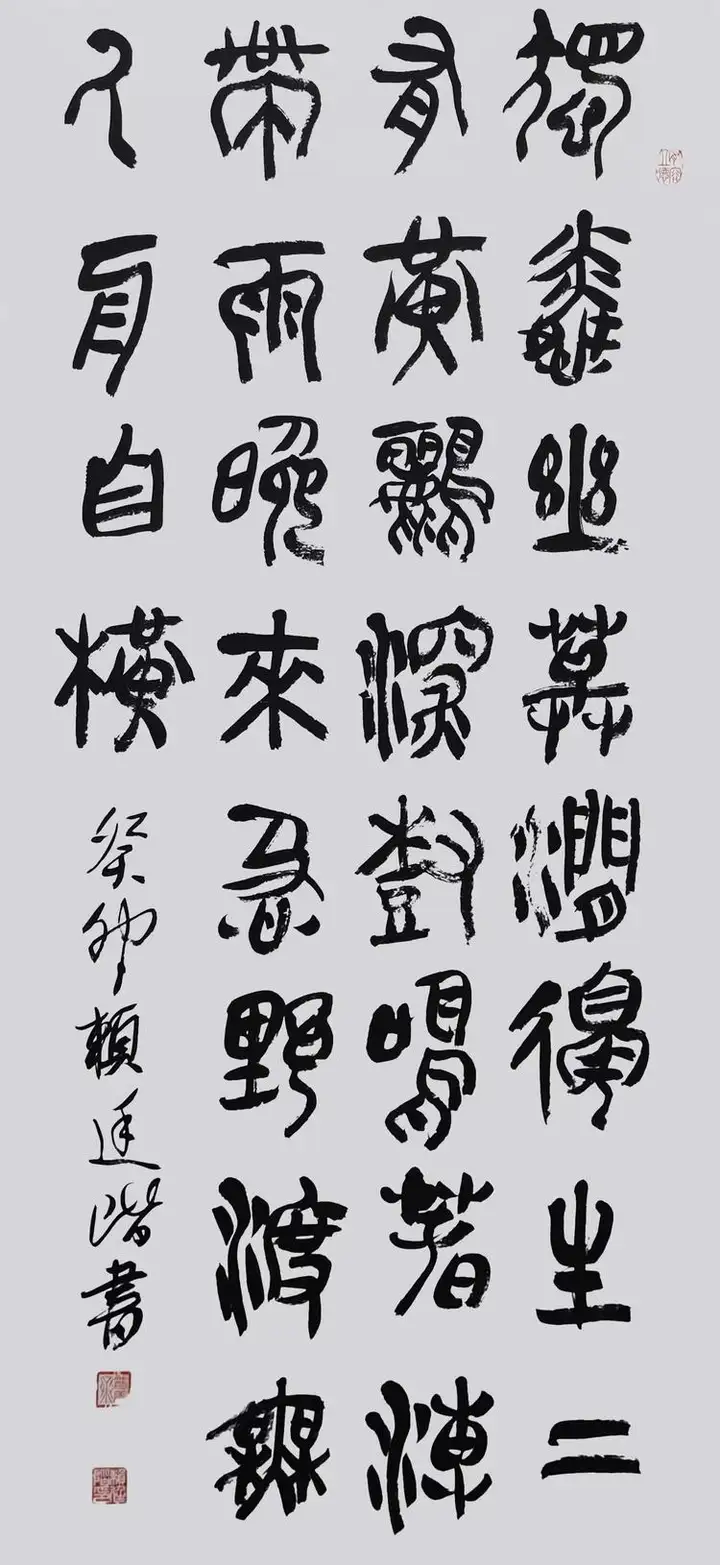 獨憐幽草澗邊生上
有黃鸝深樹鳴春潮
帶雨晚來急野渡無
人舟自橫
癸卯賴廷階書